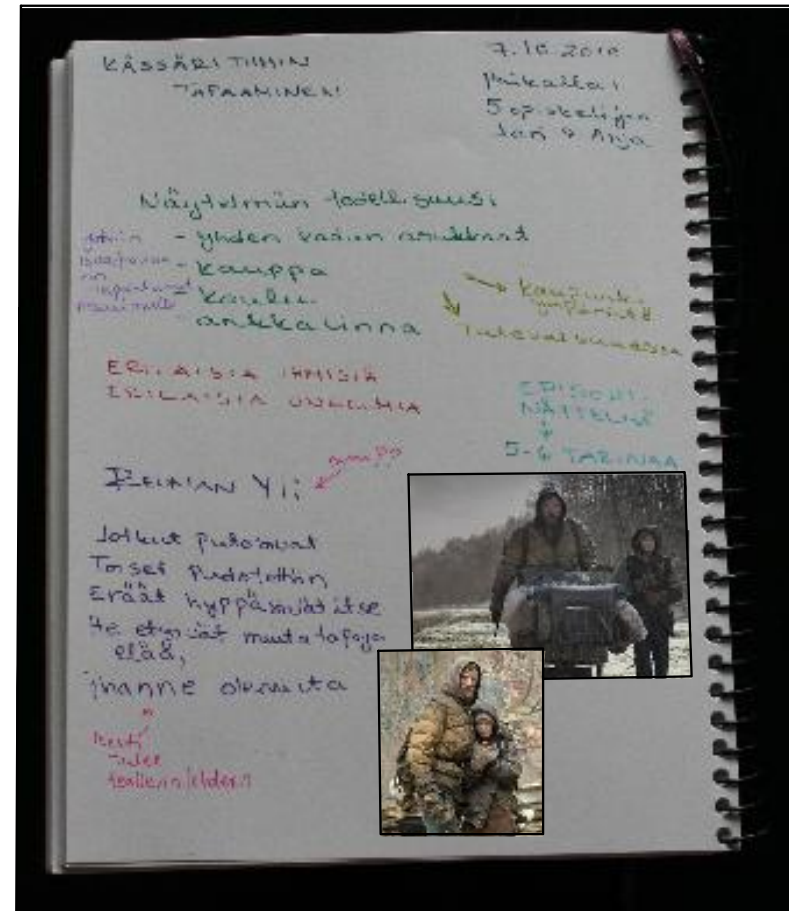 KÄSSÄRITIIMIN
TAPAAMINEN
7.10.2010
Paikalla:
5 opiskelijaa
Näytelmän todellisuus:
- yhden kadun asukkaat
- kauppa
- koulu
- ankkalinna
→ Kaupunki-
ympäristö
Tulevaisuudessa
ERILAISIA IHMISIÄ
ERILAISIA UNELMIA
EPISODI-
NÄYTELMÄ
5-6 TARINAA
REUNAN YLI
Jotkut putoavat
Toiset pudotetaan
Eräät hyppäävät itse
He etsivät muita tapoja
elää,
ihanne olemista